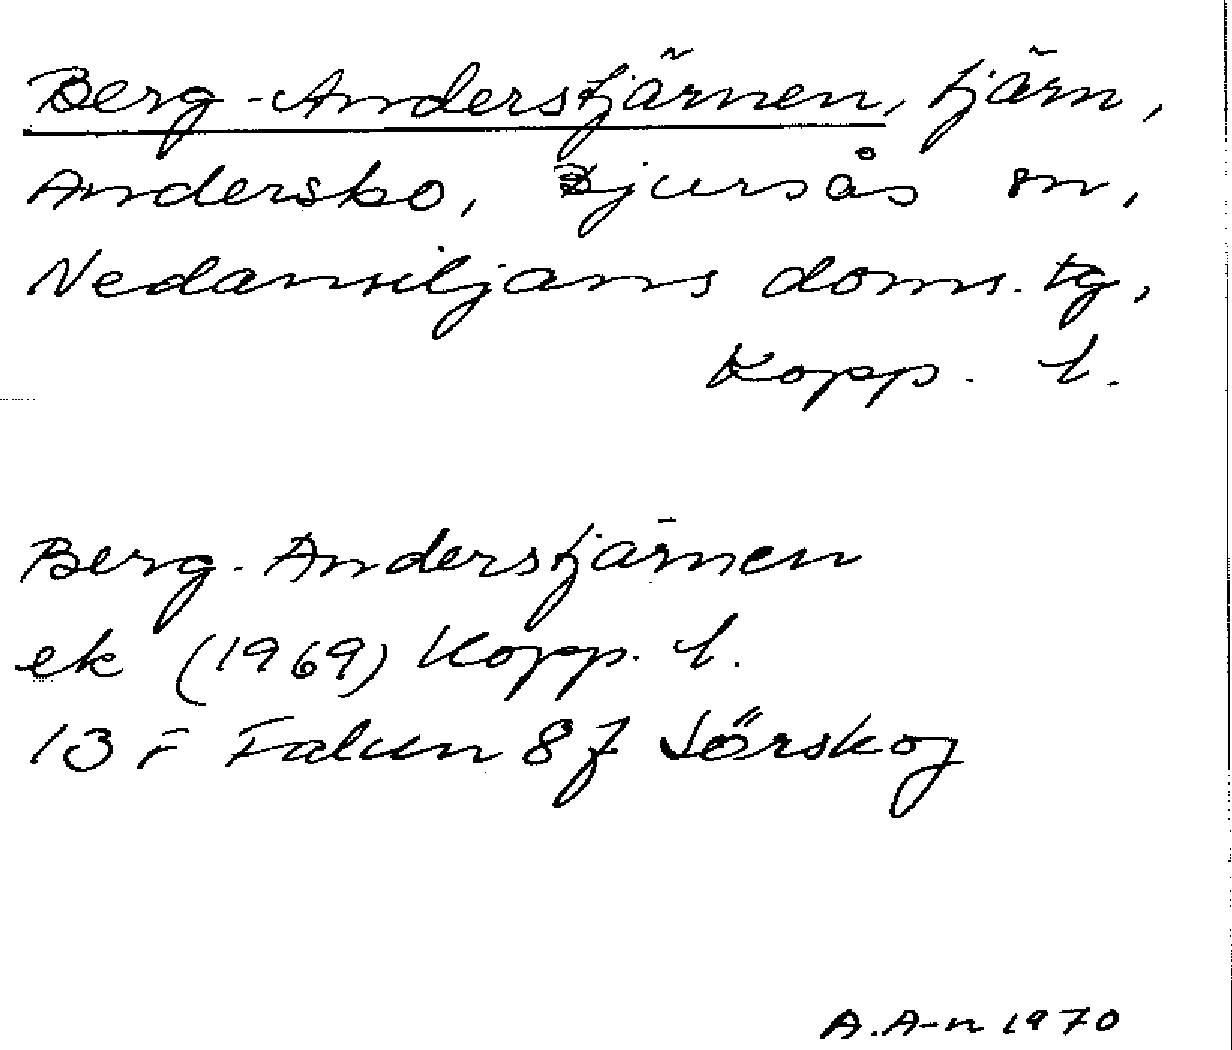 Berg-Anderstjärnen, tjärn,
Andersbo, Bjursås sn,
Nedansiljans doms. tg,
Kopp. l.
Berg-Anderstjärnen
ek (1969) Kopp. l.
13 F Falun 8 f Sörskog
A.A-n 1970